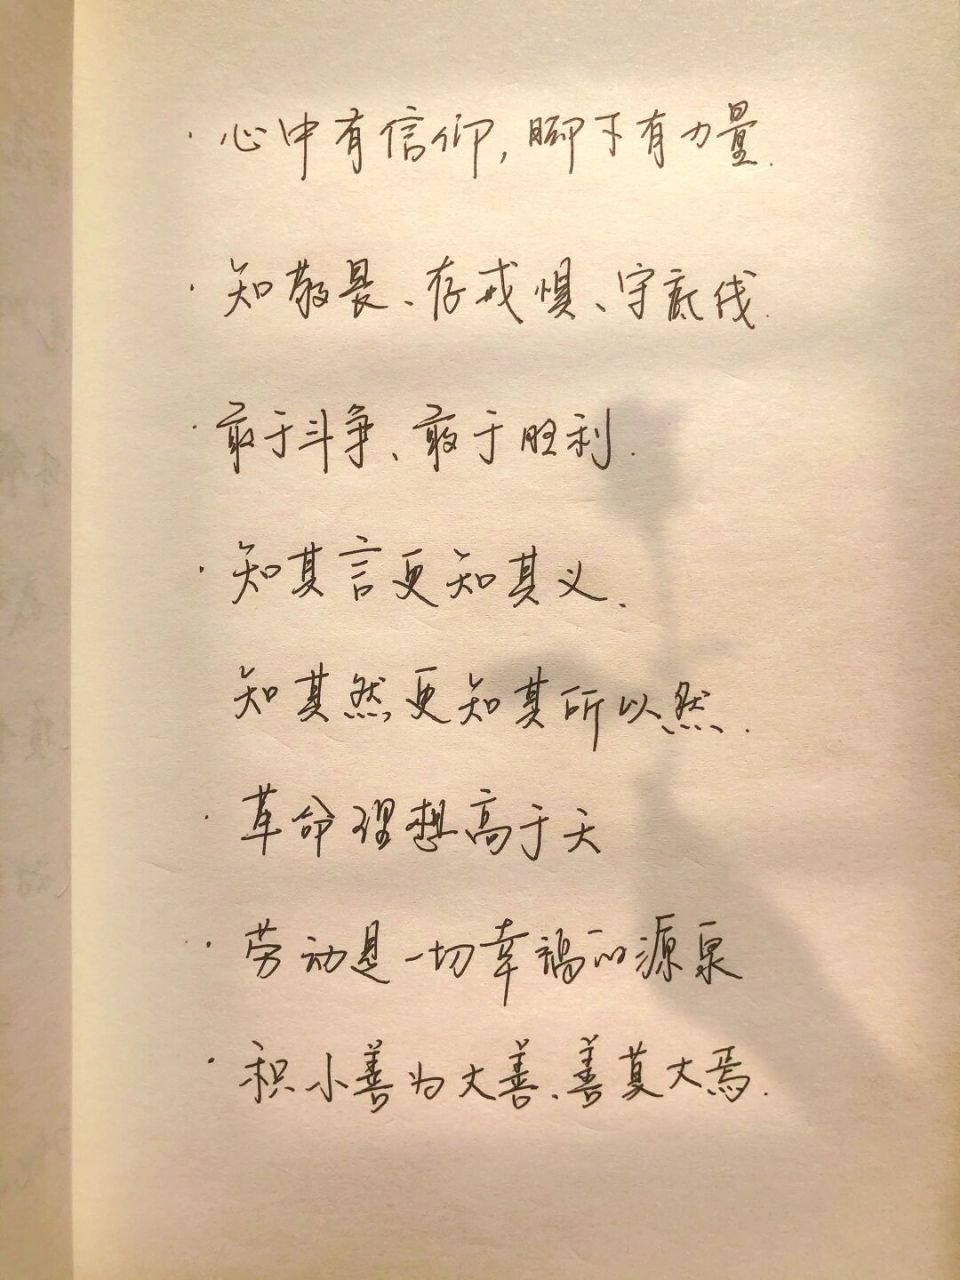 · 心中有信仰,脚下有力量.
· 知敬畏、存戒惧、守底线.
· 敢于斗争、敢于胜利.
· 知其言更知其义.
知其然更知其所以然.
· 革命理想高于天
· 劳动是一切幸福的源泉
· 积小善为大善、善莫大焉.